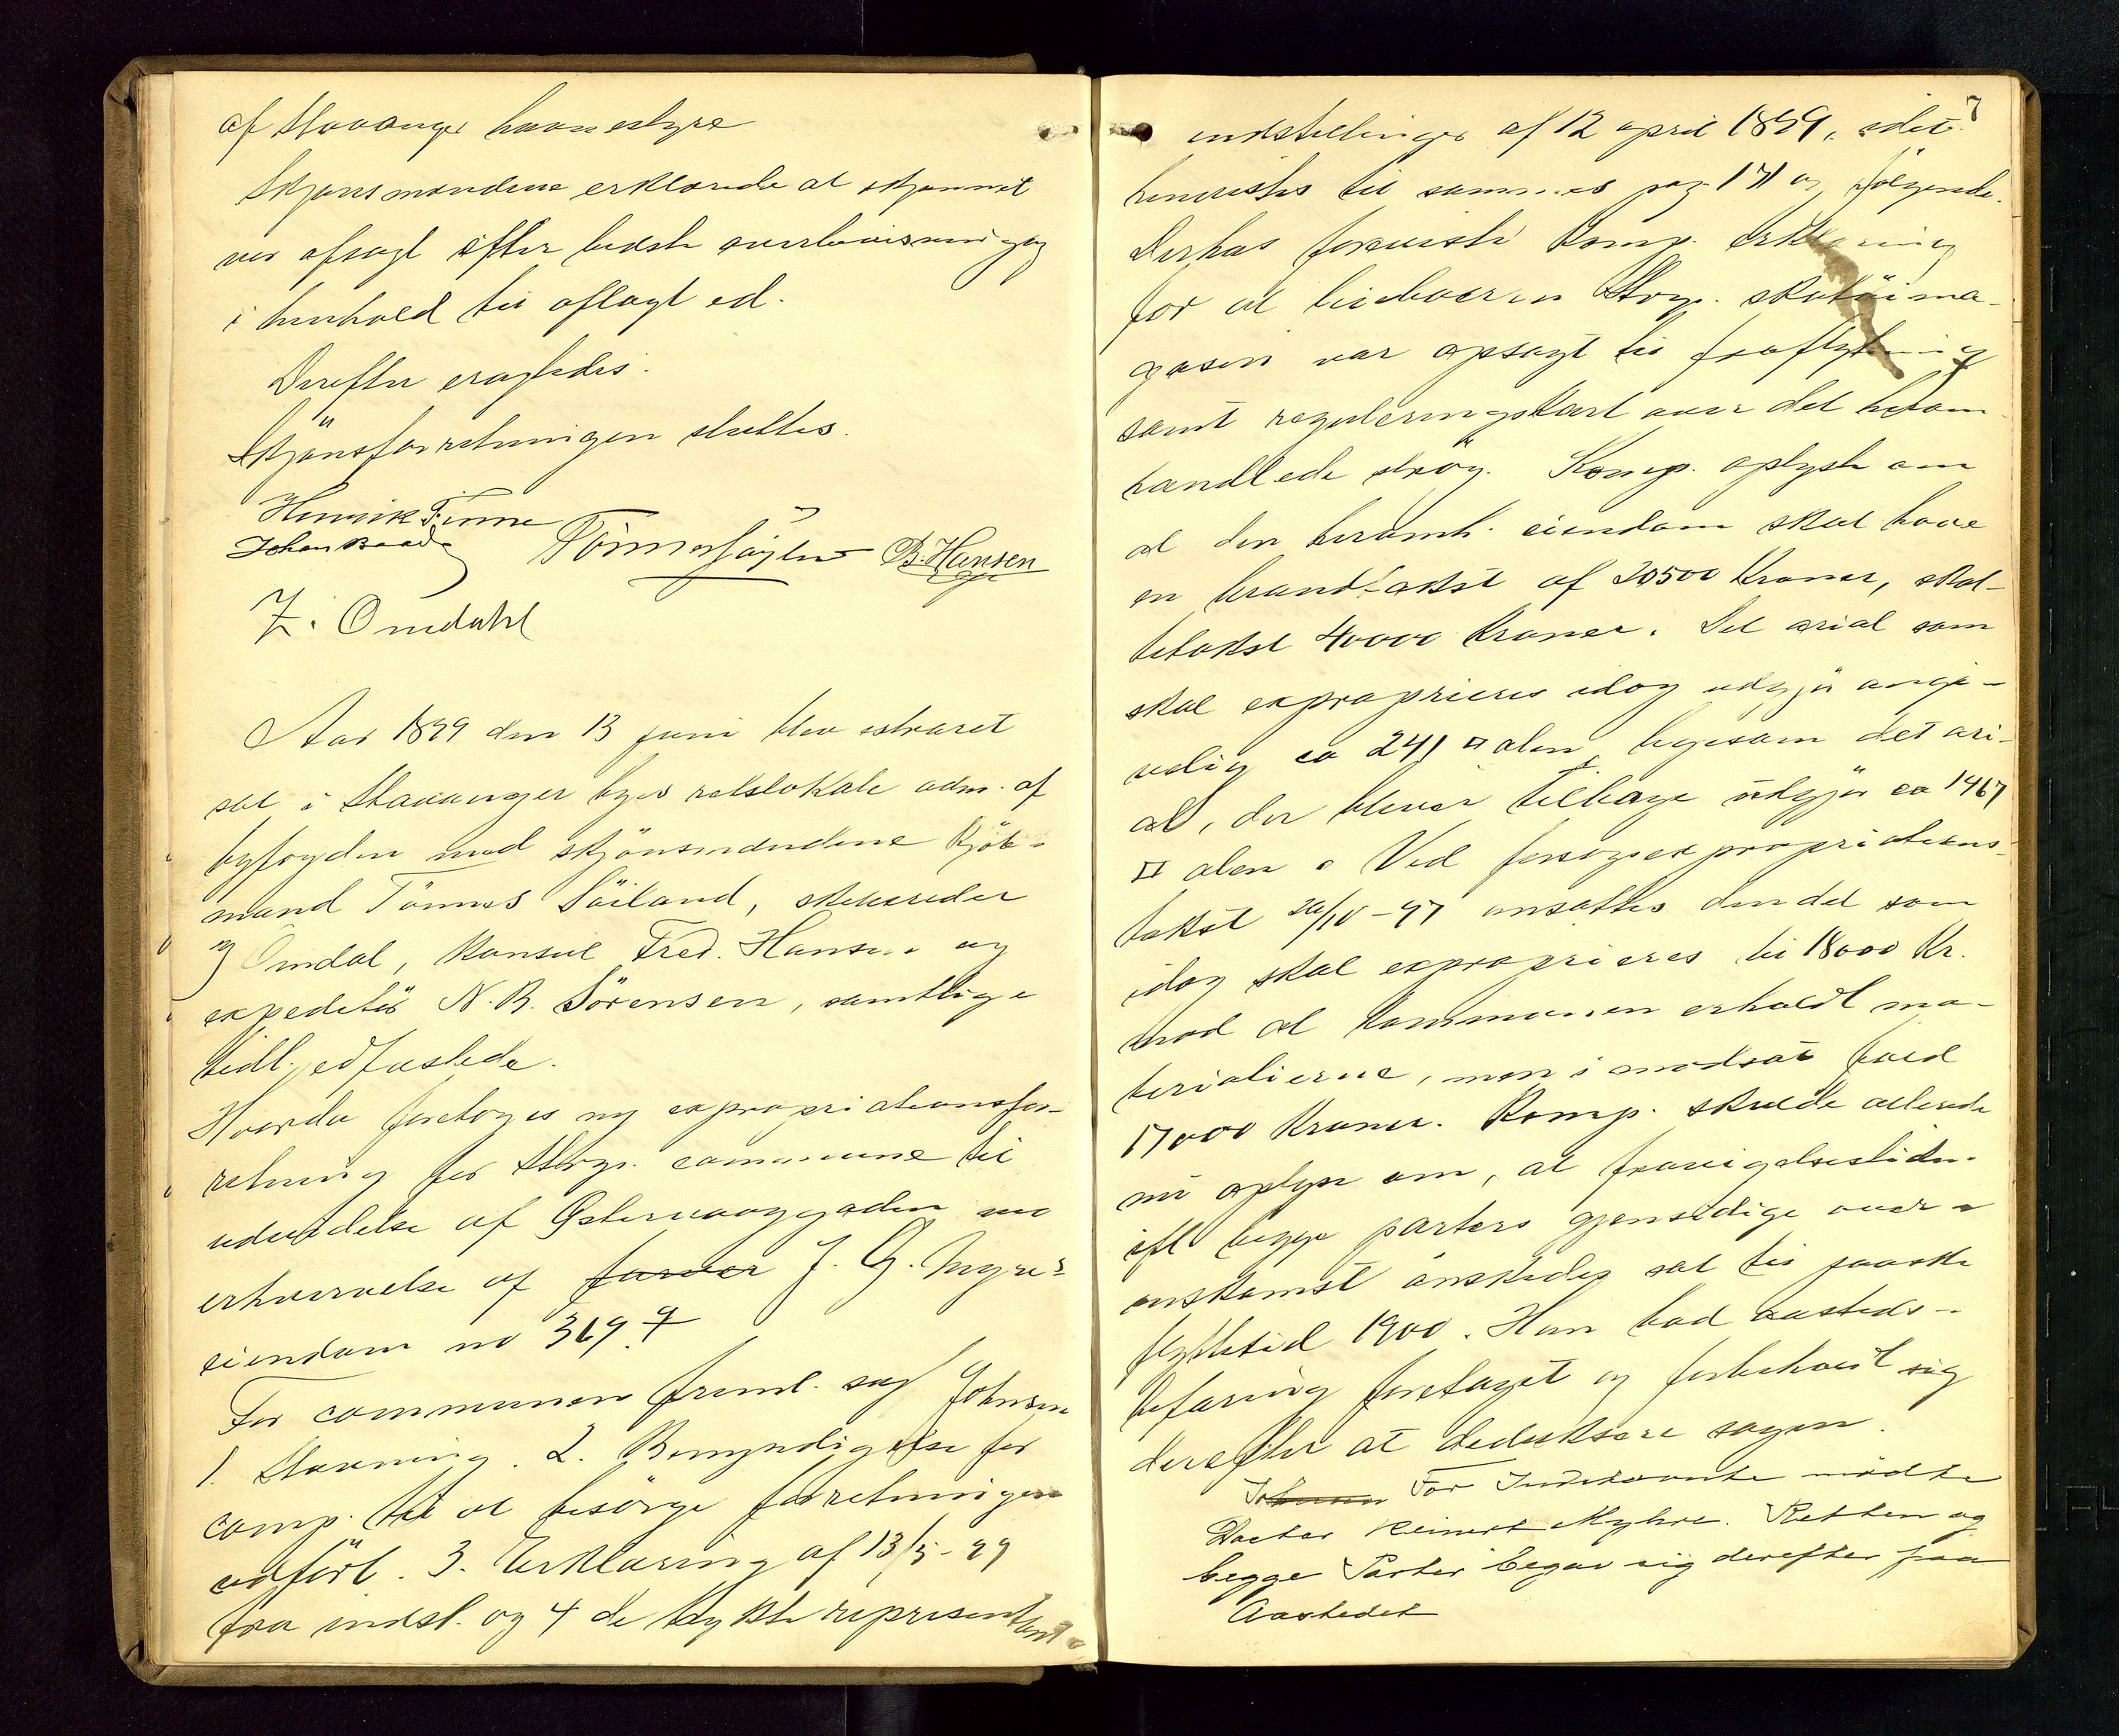 af Stavanger havnestyre
Skjønsmændene erklærede at skjønnet
var afsagt efter bedste overbevisning og
i henhold til aflagt ed.
Derefter eragtedes:
Skjönsforretningen sluttes.
Henrik Finne
Johan Baade Tönnes Søyland B. Hansen
Z. Omdahl
Aar 1899 den 13 juni blev extraret
sat i Stavanger byes retslokale adm. af
byfogden med skjönsmændene Kjöb-
mand Tönnes Söiland, skibsreder
Omdal, Konsul Fred. Hansen og
expeditör N. B. Sörensen, samtlige
tidl. edfæstede.
Hvorda foretoges ny expropriationsfor-
retning for Stvgr. commune til
udvidelse af Østervaaggaden ved
erhvervelse af farver J. G. Myres
eiendom no 369.
For communen freml. sagf. Johnsen
1. Stævning. 2. Bemyndigelse for
comp. til at besörge forretningen
udfört. 3. Erklæring af 13/5-99
fra indst. og 4 de trykte representant-
7
indstillinger af 12 april 1899, idet
henvistes til sammes pag. 171 og fölgende.
Derhos foreviste Komp. erklæring
for at leieboeren Stvgr. skotöima-
gasin var opsagt til fraflytning
samt reguleringskart over det heromt
handlede strög. Komp. oplyste om
at den heromh. eiendom skal have
en brandtakst af 20500 Kroner, skat-
tetakst 40000 Kroner. Det arial som
skal exproprieres idag udgjör angi-
velig ca 241 □ alen, ligesom det ari-
al, der bliver tilbage udgjör ca 1467
□ alen. Ved forrige expropriations-
takst 20/10-97 ansattes den del som
idag skal exproprieres til 18000 Kr.
mod at kommunen erholdt ma-
terialierne, men i modsat fald
17000 Kroner. Komp. skulde allerede
nu oplyse om, at fravigelsestiden
ifl. begge parters gjensidige over-
enskomst önskedes sat til paaske
flyttetid 1900. Han bad aasteds-
befaring foretaget og forbeholdt sig
derefter at deduksere sagen.
Johnsen For Indstævnte mødte
Doctor Reinert Myhre. Retten og
begge Parter begav sig derefter paa
Aastedet